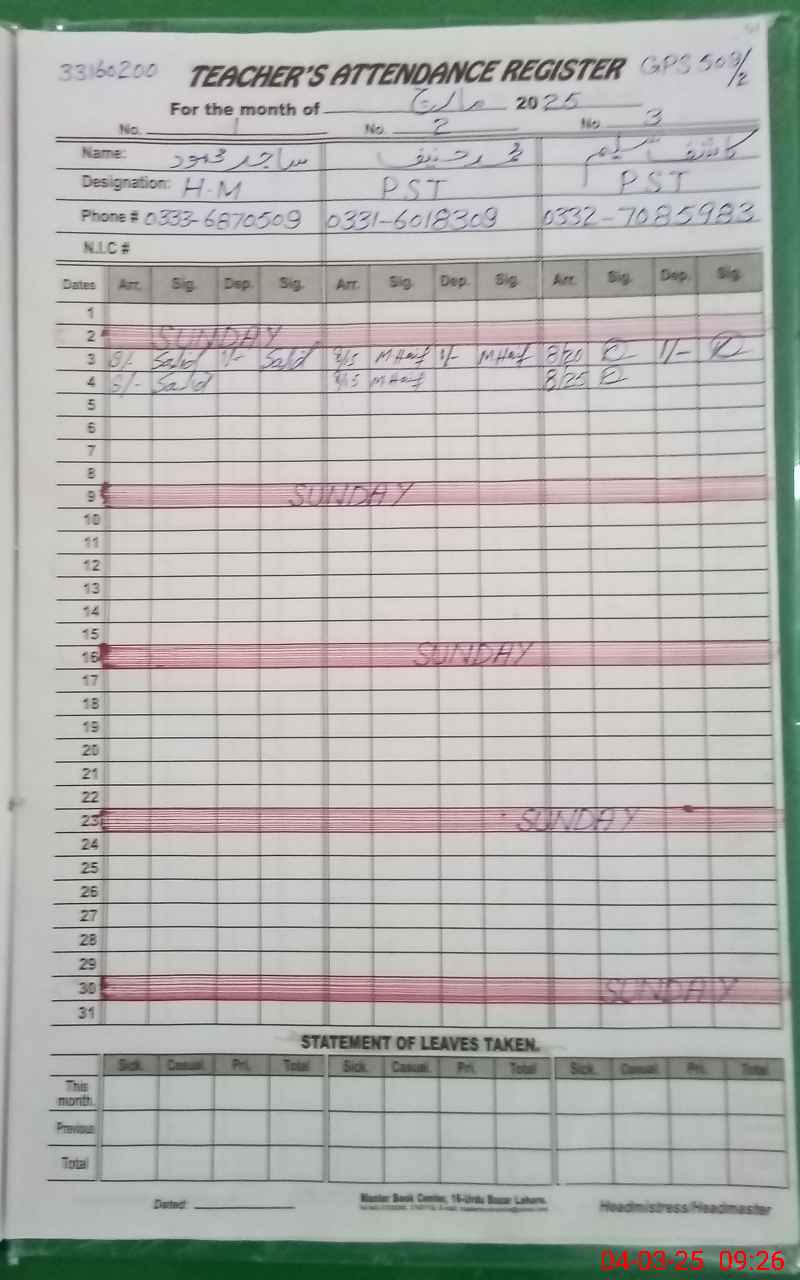 33160200 TEACHER'S ATTENDANCE REGISTER GPS 503/2
For the month of مارچ 2025
No. 1 No. 2 No 3
Name: ساجد محمود محمد حنیف کاشف سلیم
Designation: H-M PST PST
Phone # 0333-6870509 0331-6018309 0332-7085983
N.I.C #
Dates Arr. Sig. Dep. Sig. Arr. Sig. Dep. Sig. Arr. Sig. Dep. Sig.
1
2 SUNDAY
3 8/- Sajid 1/- Sajid 8/15 1/- 8/20 1/-
4 8/- Sajid 8/15 8/25
5
6
7
8
9 SUNDAY
10
11
12
13
14
15
16 SUNDAY
17
18
19
20
21
22
23 SUNDAY
24
25
26
27
28
29
30 SUNDAY
31
STATEMENT OF LEAVES TAKEN.
Sick. Casual. Pri. Total Sick. Casual. Pri. Total Sick. Casual. Pri. Total
This month.
Previous
Total
Dated: Master Book Center, 16-Urdu Bazar Lahore. Headmistress/Headmaster
04-03-25 09:26